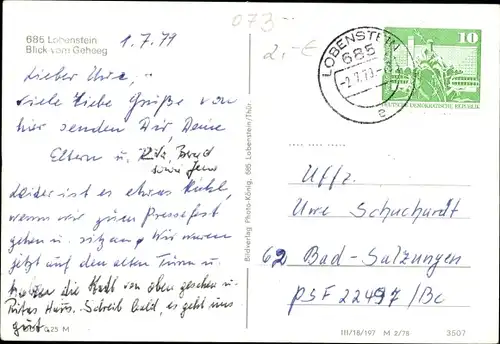 685 Lobenstein
Blick vom Geheeg
1.7.79
073-
2,-€
Lieber Uwe,
viele liebe Grüße von
hier senden Dir, Deine
Eltern u. Rita, Bernd
sowie Jens
Leider ist es etwas kühl,
wenn wir zum Pressefest
gehen u. sitzen. Wir waren
jetzt auf den alten Turm u.
haben die Stadt von oben gesehen u.
Ritas Haus. Schreib bald, es geht uns
gut.
0,25 M
Bildverlag Photo-König, 685 Lobenstein/Thür.
LOBENSTEIN
685
-2.7.79-
e
10
DEUTSCHE DEMOKRATISCHE REPUBLIK
Uffz.
Uwe Schuchardt
62 Bad-Salzungen
PSF 22497/Bc
III/18/197 M 2/78 3507